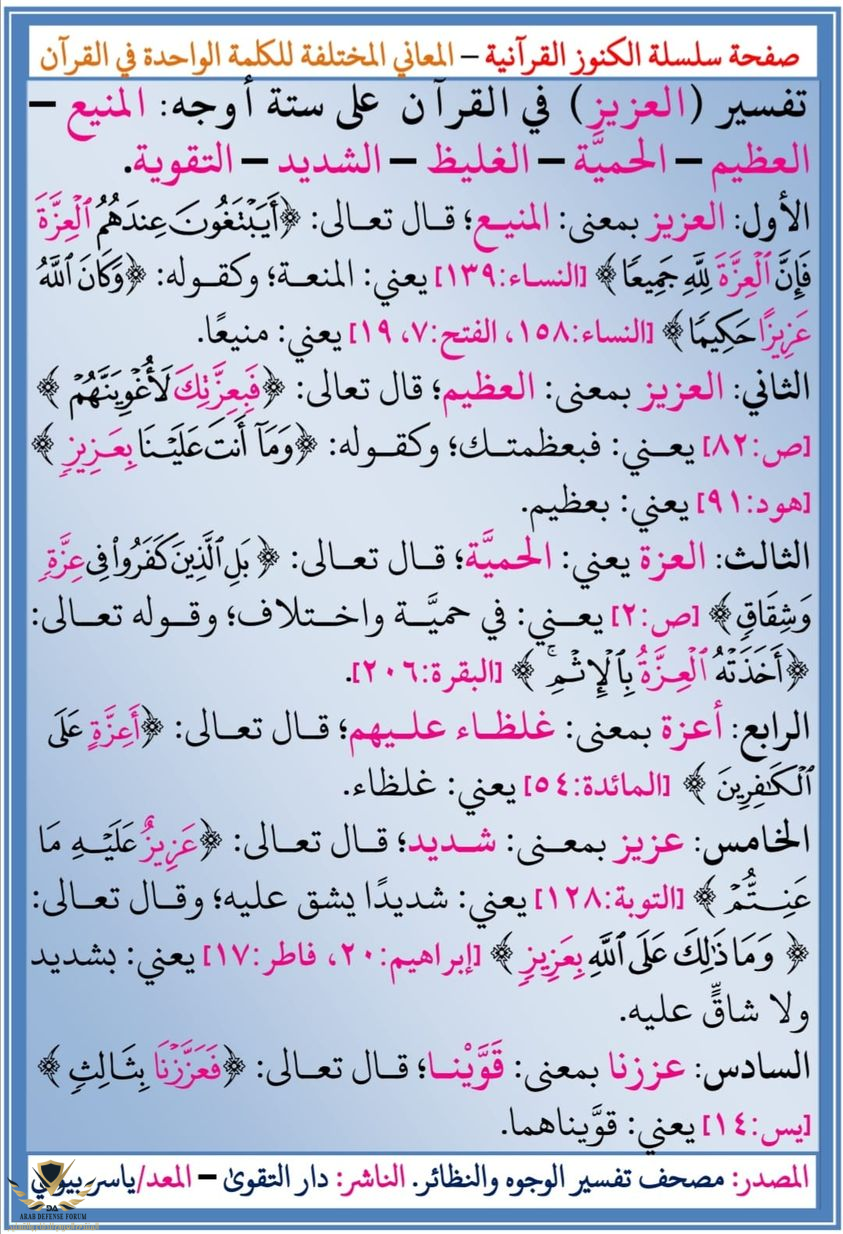 صفحة سلسلة الكنوز القرآنية – المعاني المختلفة للكلمة الواحدة في القرآن
تفسير (العزيز) في القرآن على ستة أوجه: المنيع –
العظيم – الحميَّة – الغليظ – الشديد – التقوية.
الأول: العزيز بمعنى: المنيـع؛ قـال تعـالى: ﴿أَيَبۡتَغُونَ عِندَهُمُ ٱلۡعِزَّةَ
فَإِنَّ ٱلۡعِزَّةَ لِلَّهِ جَمِيعٗا﴾ [النساء:١٣٩] يعني: المنعـة؛ وكقـولـه: ﴿وَكَانَ ٱللَّهُ
عَزِيزًا حَكِيمٗا﴾ [النساء:١٥٨، الفتح:٧، ١٩] يعني: منيعًا.
الثاني: العزيز بمعنى: العظيم؛ قال تعالى: ﴿فَبِعِزَّتِكَ لَأُغۡوِيَنَّهُمۡ﴾
[ص:٨٢] يعـني: فبعظمتـك؛ وكقـولـه: ﴿وَمَآ أَنتَ عَلَيۡنَا بِعَزِيزٖ﴾
[هود:٩١] يعني: بعظيم.
الثالث: العزة يعني: الحميَّة؛ قـال تعـالى: ﴿بَلِ ٱلَّذِينَ كَفَرُواْ فِي عِزَّةٖ
وَشِقَاقٖ﴾ [ص:٢] يعـني: في حميَّـة واخـتلاف؛ وقـوله تعـالى:
﴿أَخَذَتۡهُ ٱلۡعِزَّةُ بِٱلۡإِثۡمِۚ﴾ [البقرة:٢٠٦].
الرابع: أعزة بمعنى: غلظـاء علـيهم؛ قـال تعـالى: ﴿أَعِزَّةٍ عَلَى
ٱلۡكَٰفِرِينَ﴾ [المائدة:٥٤] يعني: غلظاء.
الخامس: عزيز بمعـنى: شـديد؛ قـال تعـالى: ﴿عَزِيزٌ عَلَيۡهِ مَا
عَنِتُّمۡ﴾ [التوبة:١٢٨] يعني: شديدًا يشق عليه؛ وقـال تعـالى:
﴿وَمَا ذَٰلِكَ عَلَى ٱللَّهِ بِعَزِيزٖ﴾ [إبراهيم:٢٠، فاطر:١٧] يعني: بشديد
ولا شاقٍّ عليه.
السادس: عززنا بمعنى: قَوَّيْنـا؛ قـال تعـالى: ﴿فَعَزَّزۡنَا بِثَالِثٖ﴾
[يس:١٤] يعني: قوَّيناهما.
المصدر: مصحف تفسير الوجوه والنظائر. الناشر: دار التقوىٰ – المعد/ياسر بيومي
ARAB DEFENSE FORUM